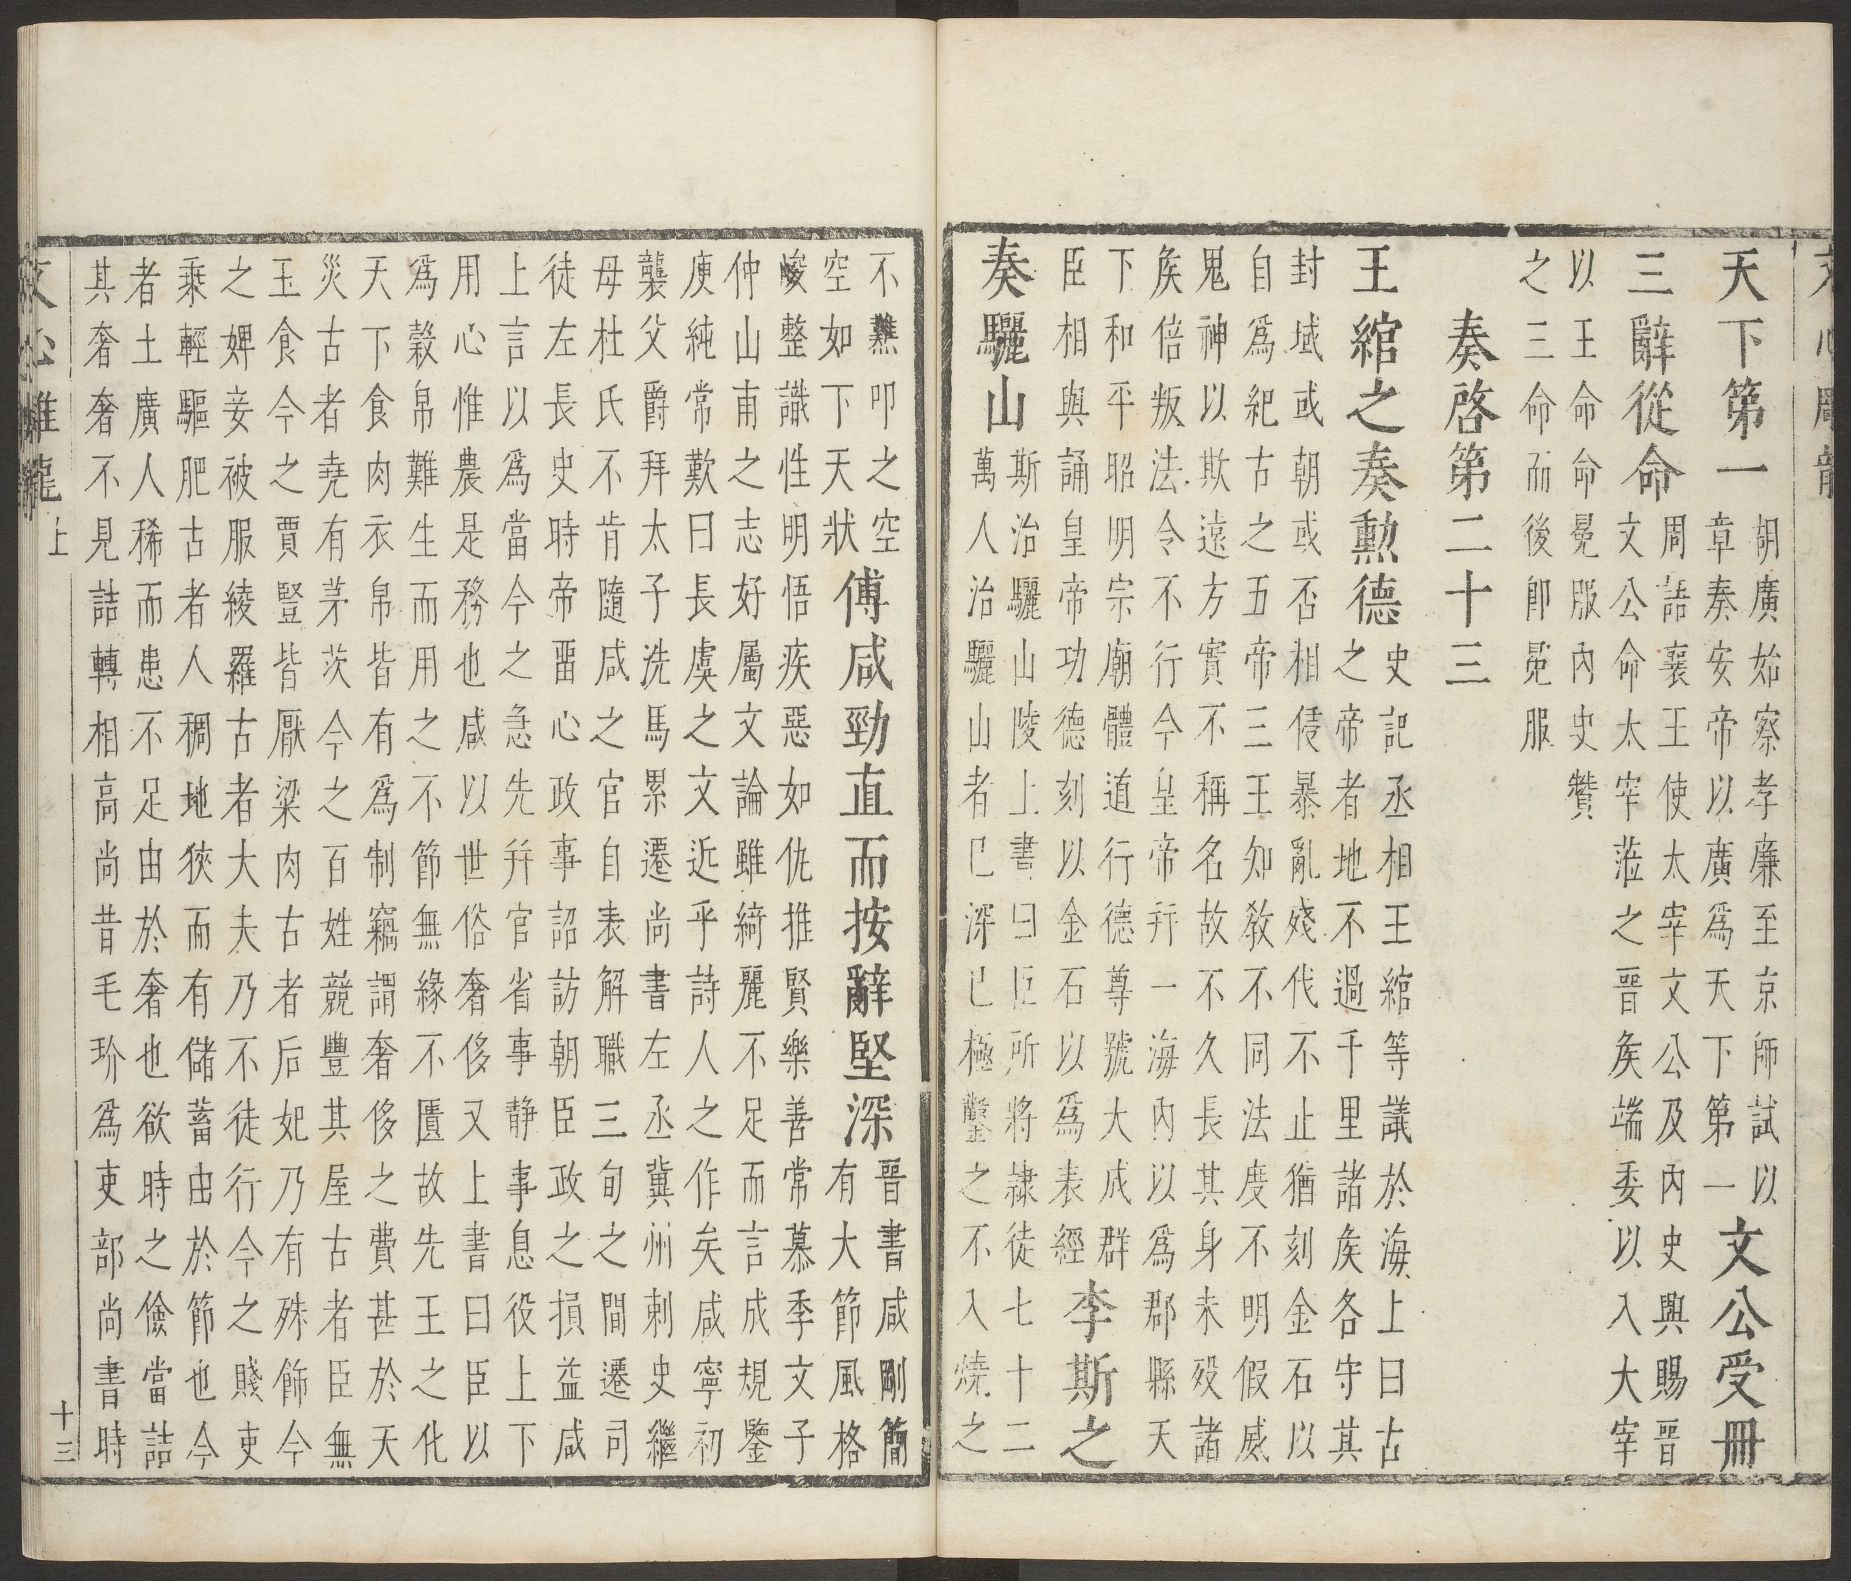 天下第一
胡廣始察孝廉至京師試以
章奏安帝以廣爲天下第一
文公受冊
三辭從命
周語襄王使太宰文公及內史興賜晉
文公命太宰蒞之晉矦端委以入大宰
以王命命冕服內史贊
之三命而後卽冕服
奏啓第二十三
王綰之奏勲德
史記丞相王綰等議於海上曰古
之帝者地不過千里諸矦各守其
封域或朝或否相侵暴亂殘伐不止猶刻金石以
自爲紀古之五帝三王知教不同法度不明假威
鬼神以欺遠方實不稱名故不久長其身未歿諸
矦倍叛法令不行今皇帝幷一海內以爲郡縣天
下和平昭明宗廟體道行德尊號大成群
臣相與誦皇帝功德刻以金石以爲表經
李斯之
奏驪山
斯治驪山陵上書曰臣所將隷徒七十二
萬人治驪山者已深已極鑿之不入燒之
不爇叩之空
空如下天狀
傅咸勁直而按辭堅深
晉書咸剛簡
有大節風格
峻整識性明悟疾惡如仇推賢樂善常慕季文子
仲山甫之志好屬文論雖綺麗不足而言成規鑒
庾純常歎曰長虞之文近乎詩人之作矣咸寧初
襲父爵拜太子洗馬累遷尚書左丞冀州刺史繼
母杜氏不肯隨咸之官自表解職三旬之間遷司
徒左長史時帝畱心政事詔訪朝臣政之損益咸
上言以爲當今之急先幷官省事静事息役上下
用心惟農是務也咸以世俗奢侈又上書曰臣以
爲穀帛難生而用之不節無緣不匱故先王之化
天下食肉衣帛皆有爲制竊謂奢侈之費甚於天
災古者堯有茅茨今之百姓競豐其屋古者臣無
玉食今之賈豎皆厭粱肉古者后妃乃有殊飾今
之婢妾被服綾羅古者大夫乃不徒行今之賤吏
乘輕驅肥古者人稠地狹而有儲蓄由於節也今
者土廣人稀而患不足由於奢也欲時之儉當詰
其奢奢不見詰轉相高尚昔毛玠爲吏部尚書時
文心雕龍 上 十三